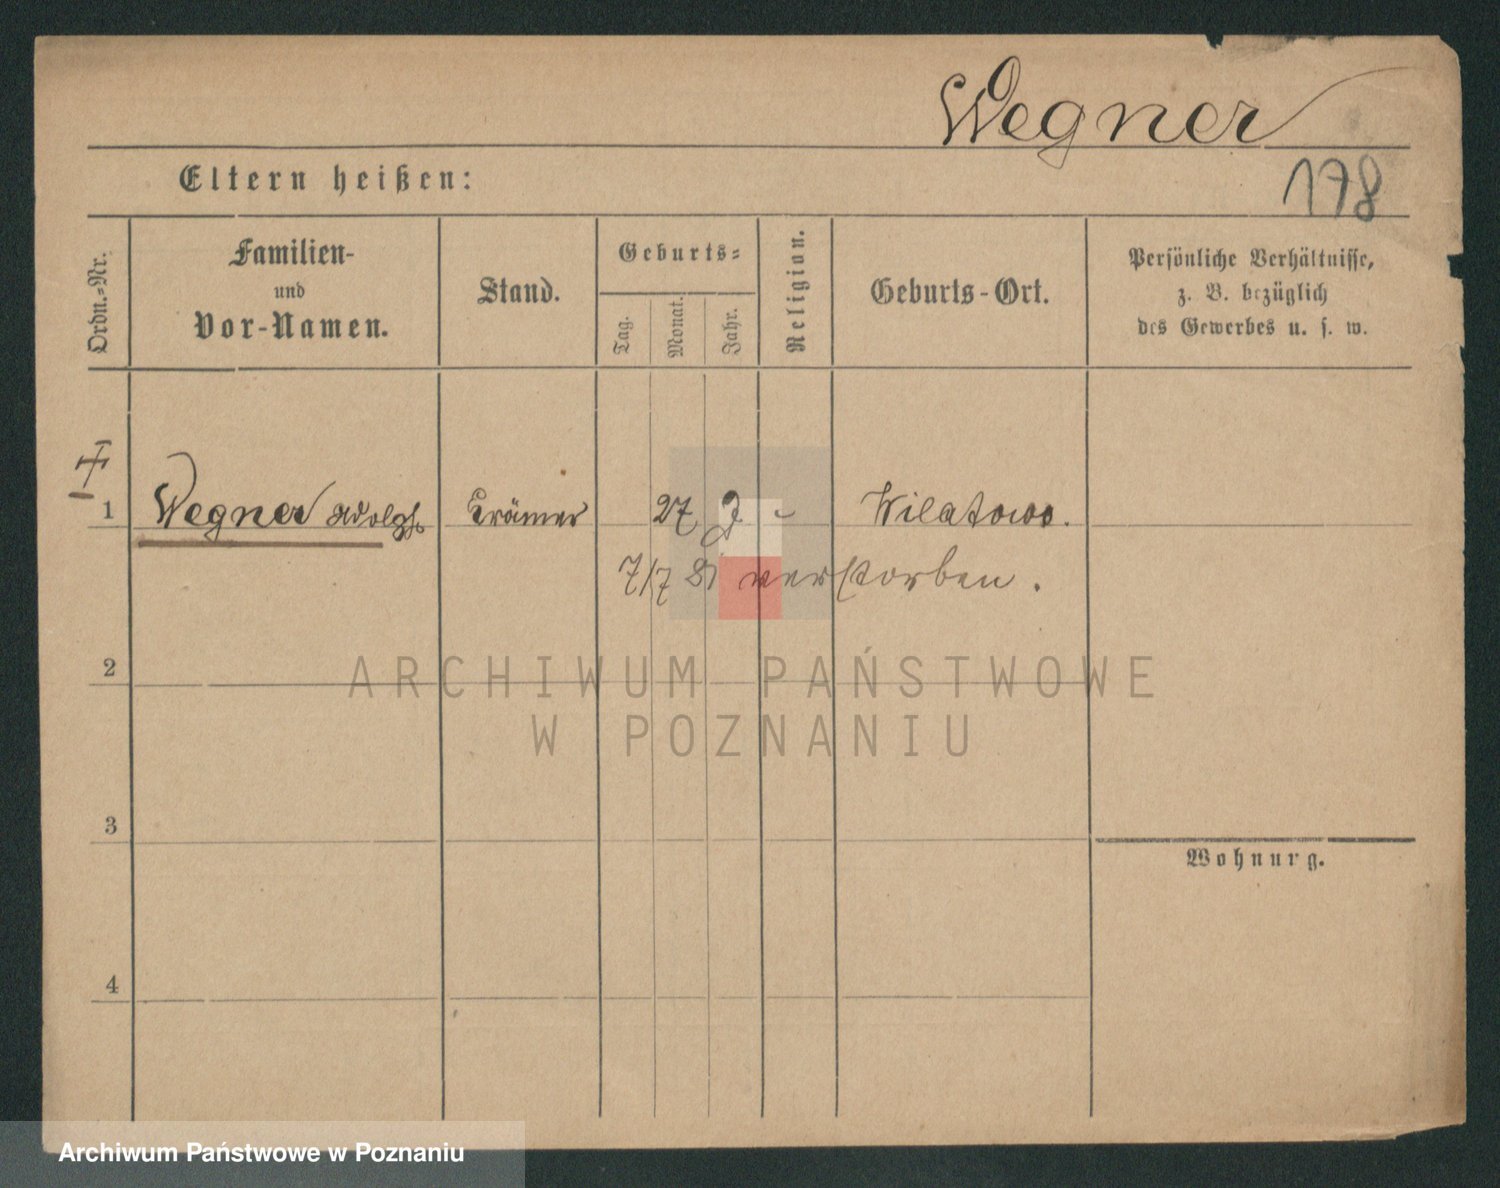 Wegner
178
Eltern heißen:
Ordn.-Nr.
Familien-
und
Vor-Namen.
Stand.
Geburts-
Tag.
Monat.
Jahr.
Religion.
Geburts-Ort.
Persönliche Verhältnisse,
z. B. bezüglich
des Gewerbes u. s. w.
1 Wegner Adolph Krämer 27 J - Wilatowo.
7/7 81 verstorben.
2
3
Wohnung.
4
ARCHIWUM PAŃSTWOWE
W POZNANIU
Archiwum Państwowe w Poznaniu